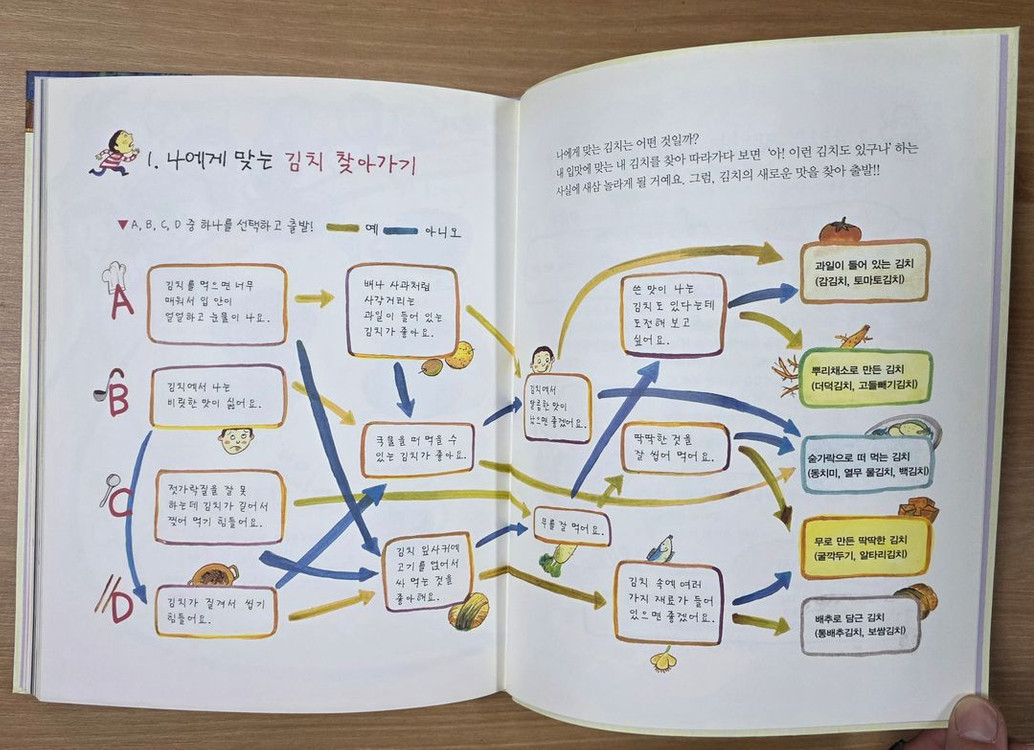 1. 나에게 맞는 김치 찾아가기
▼A, B, C, D 중 하나를 선택하고 출발! 예 아니오
A
김치를 먹으면 너무
매워서 입 안이
얼얼하고 눈물이 나요.
B
김치에서 나는
비릿한 맛이 싫어요.
C
젓가락질을 잘 못
하는데 김치가 길어서
찢어 먹기 힘들어요.
D
김치가 질겨서 씹기
힘들어요.
배나 사과처럼
사각거리는
과일이 들어 있는
김치가 좋아요.
국물을 떠 먹을 수
있는 김치가 좋아요.
김치 잎사귀에
고기를 얹어서
싸 먹는 것을
좋아해요.
나에게 맞는 김치는 어떤 것일까?
내 입맛에 맞는 내 김치를 찾아 따라가다 보면 ‘아! 이런 김치도 있구나’ 하는
사실에 새삼 놀라게 될 거예요. 그럼, 김치의 새로운 맛을 찾아 출발!!
김치에서
달콤한 맛이
났으면 좋겠어요.
무를 잘 먹어요.
쓴 맛이 나는
김치도 있다는데
도전해 보고
싶어요.
딱딱한 것을
잘 씹어 먹어요.
김치 속에 여러
가지 재료가 들어
있으면 좋겠어요.
과일이 들어 있는 김치
(감김치, 토마토김치)
뿌리채소로 만든 김치
(더덕김치, 고들빼기김치)
숟가락으로 떠 먹는 김치
(동치미, 열무 물김치, 백김치)
무로 만든 딱딱한 김치
(굴깍두기, 알타리김치)
배추로 담근 김치
(통배추김치, 보쌈김치)